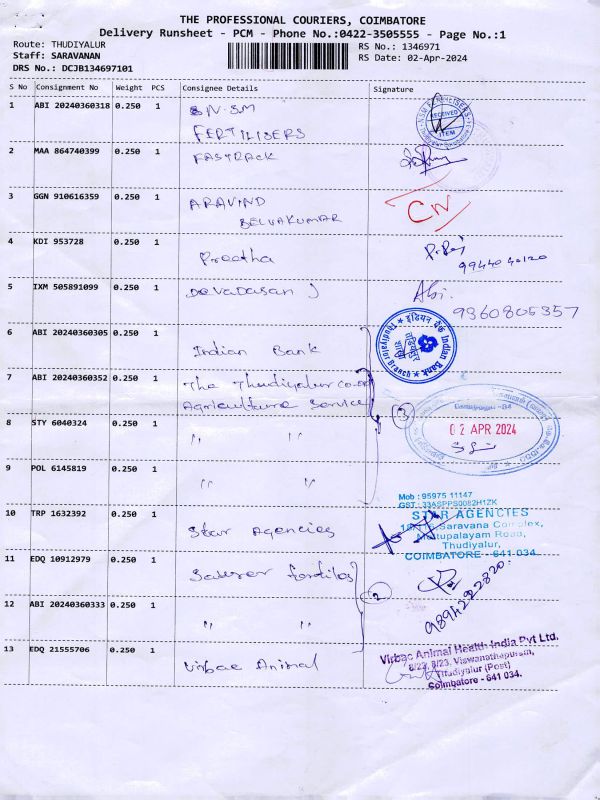 THE PROFESSIONAL COURIERS, COIMBATORE
Delivery Runsheet - PCM - Phone No.:0422-3505555 - Page No.:1
Route: THUDIYALUR
RS No.: 1346971
Staff: SARAVANAN
RS Date: 02-Apr-2024
DRS No.: DCJB134697101
S No Consignment No Weight PCS Consignee Details Signature
1 ABI 20240360318 0.250 1 FERTILISERS
RECEIVED
ITEM
2 MAA 864740399 0.250 1 FASTRACK
3 GGN 910616359 0.250 1 ARAVIND
SELVAKUMAR
CN
4 KDI 953728 0.250 1 Preetha
5 IXM 505891099 0.250 1 Devadasan J Abi.
9360805357
6 ABI 20240360305 0.250 1 Indian Bank
इंडियन बैंक Indian Bank
Thudiyalur Branch
7 ABI 20240360352 0.250 1 The Thudiyalur co-op
Agriculture Service
3
02 APR 2024
8 STY 6040324 0.250 1 " "
9 POL 6145819 0.250 1 " "
Mob : 95975 11147
GST : 33ASPPS0082H1ZK
10 TRP 1632392 0.250 1 Star Agencies
STAR AGENCIES
Saravana Complex,
Mettupalayam Road,
Thudiyalur,
COIMBATORE - 641 034.
11 EDQ 10912979 0.250 1
2
9894222820
12 ABI 20240360333 0.250 1 " "
13 EDQ 21555706 0.250 1 Virbac Animal
Virbac Animal Health India Pvt Ltd.
8/23, 8/23, Viswanathapuram,
Thudiyalur (Post)
Coimbatore - 641 034.